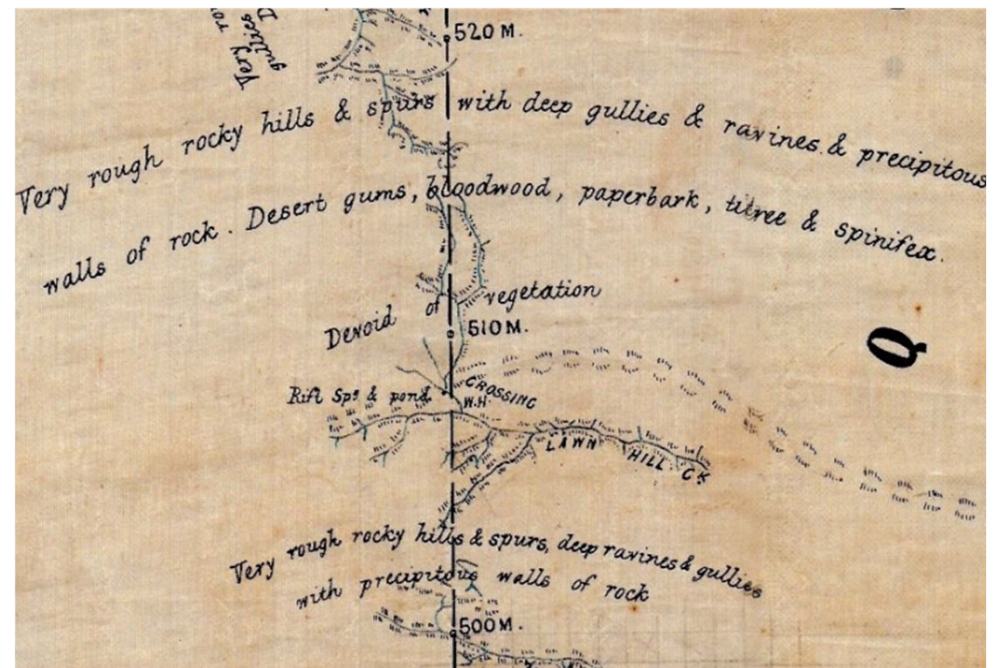 Very
gullies
520 M.
Very rough rocky hills & spurs with deep gullies & ravines. & precipitous
walls of rock. Desert gums, bloodwood, paperbark, titree & spinifex.
Devoid of vegetation
510 M.
Rift Sps & pond
CROSSING
W.H.
LAWN HILL CK
Q
Very rough rocky hills & spurs, deep ravines & gullies
with precipitous walls of rock
500 M.